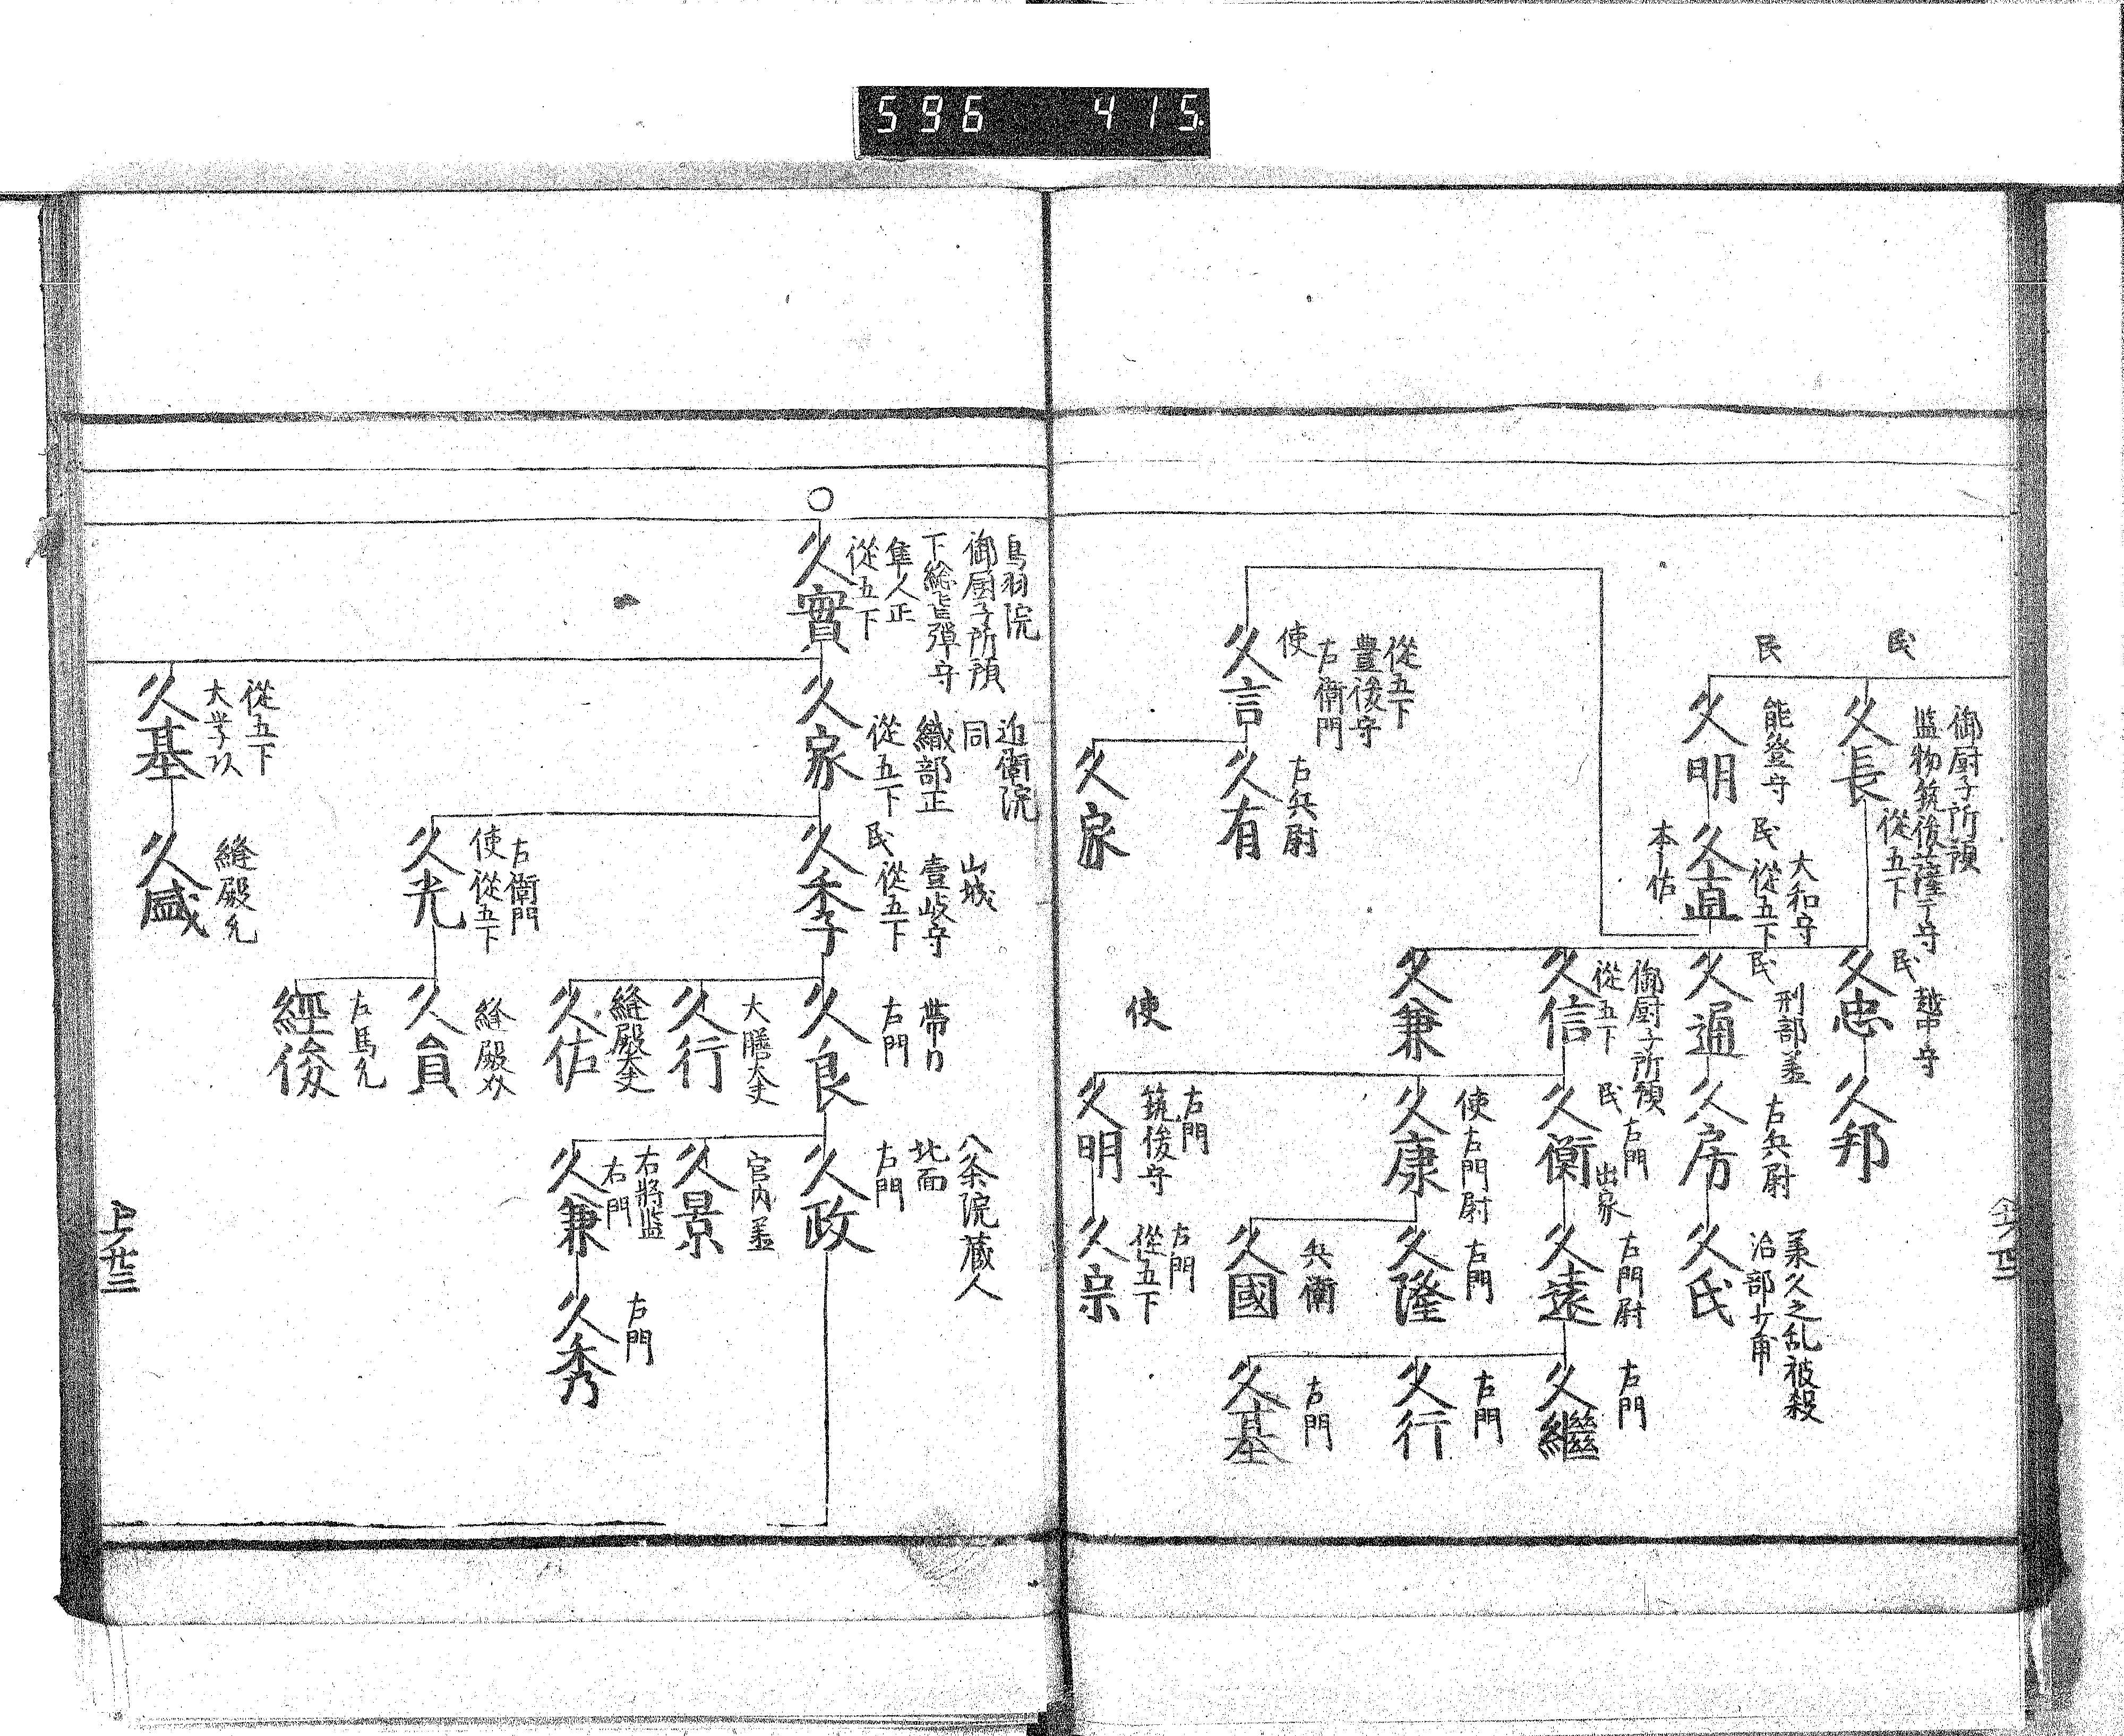 596 415
御厨子所預
監物筑後薩テ守
從五下
久長
民
民
能登守
久明
大和守
民從五下
久直
本佑
越中守
民
久忠
久邦
刑部
民
久通
右兵尉
久房
承久之乱被殺
久氏
御厨子所預
從五下
久信
民
右門
出家
久衡
右門尉
久遠
右門
久繼
久兼
使右門尉
久康
右門
久隆
右門
久行
兵衛
久國
右門
久基
使
右門
筑後守
久明
右門
從五下
久宗
從五下
豊後守
右衛門
使
久言
右兵尉
久有
久家
鳥羽院
御厨子所預
隼人正
從五下
久實
近衛院
同
織部正
從五下
久家
山城
壹岐守
民從五下
久季
帯刀
右門
久良
八条院蔵人
北面
右門
久政
大膳大夫
久行
宮内
久景
縫殿大夫
久佑
右將監
右門
久兼
右門
久秀
右衛門
使從五下
久光
縫殿
久員
左馬允
經俊
從五下
大学
久基
縫殿允
久盛
上ノ廿三